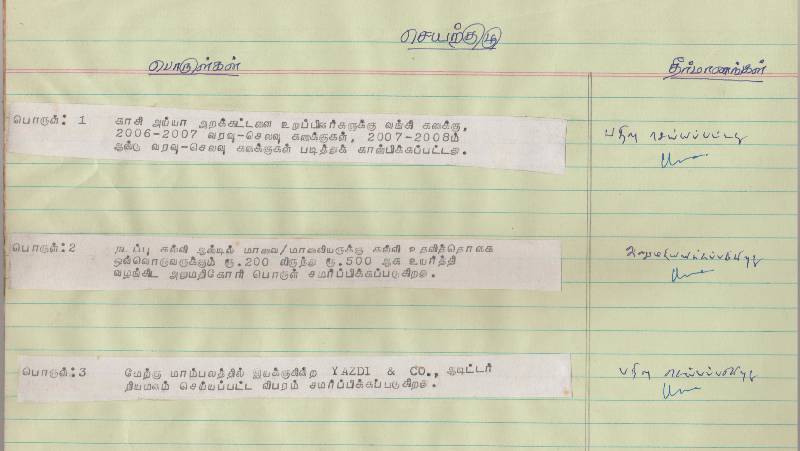 செயற்குழு
பொருள்கள்
தீர்மானங்கள்
பொருள்: 1 காசி அய்யா அறக்கட்டளை உறுப்பினர்களுக்கு வங்கி கணக்கு,
2006-2007 வரவு-செலவு கணக்குகள், 2007-2008ம்
ஆண்டு வரவு-செலவு கணக்குகள் படித்துக் காண்பிக்கப்பட்டது.
பதிவு செய்யப்பட்டது
பொருள்:2 நடப்பு கல்வி ஆண்டில் மாணவ/மாணவியருக்கு கல்வி உதவித்தொகை
ஒவ்வொருவருக்கும் ரூ.200 லிருந்து ரூ.500 ஆக உயர்த்தி
வழங்கிட அனுமதிகோரி பொருள் சமர்ப்பிக்கப்படுகிறது.
பொருள்:3 மேற்கு மாம்பலத்தில் இயங்குகின்ற YAZDI & CO., ஆடிட்டர்
நியமனம் செய்யப்பட்ட விபரம் சமர்ப்பிக்கப்படுகிறது.
பதிவு